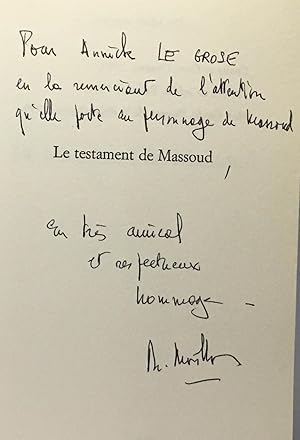 Pour Annick LE GROSE
en la remerciant de l'attention
qu'elle porte au personnage de Massoud
Le testament de Massoud
,
en très amical
et respectueux
hommage -